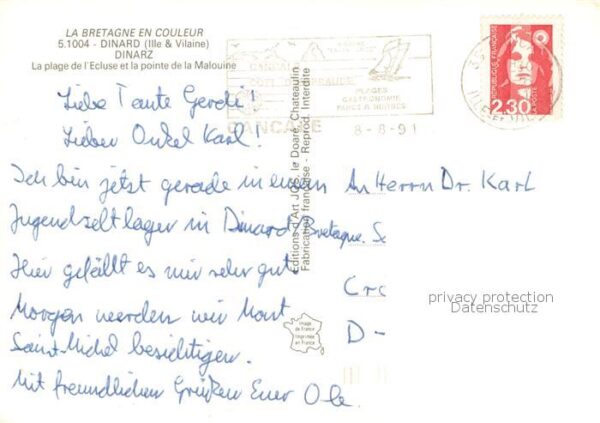 LA BRETAGNE EN COULEUR
5.1004 - DINARD (Ille & Vilaine)
DINARZ
La plage de l'Ecluse et la pointe de la Malouine
CANCALE
PLAGES
GASTRONOMIE
PARCS A HUITRES
CANCALE
8-8-91
REPUBLIQUE FRANÇAISE
LA POSTE
2,30
ILLE ET VIL
Liebe Tante Gerdi!
Lieber Onkel Karl!
Ich bin jetzt gerade in einem
Jugendzeltlager in Dinard/Bretagne.
Hier gefällt es mir sehr gut.
Morgen werden wir Mont
Saint-Michel besichtigen.
Mit freundlichen Grüßen Euer Ole
An Herrn Dr. Karl
Sc
Crc
D-
Editions d'Art JOS, le Doaré, Chateaulin
Fabrication française - Reprod. Interdite
Image
de France
Imprimée
en France
privacy protection
Datenschutz